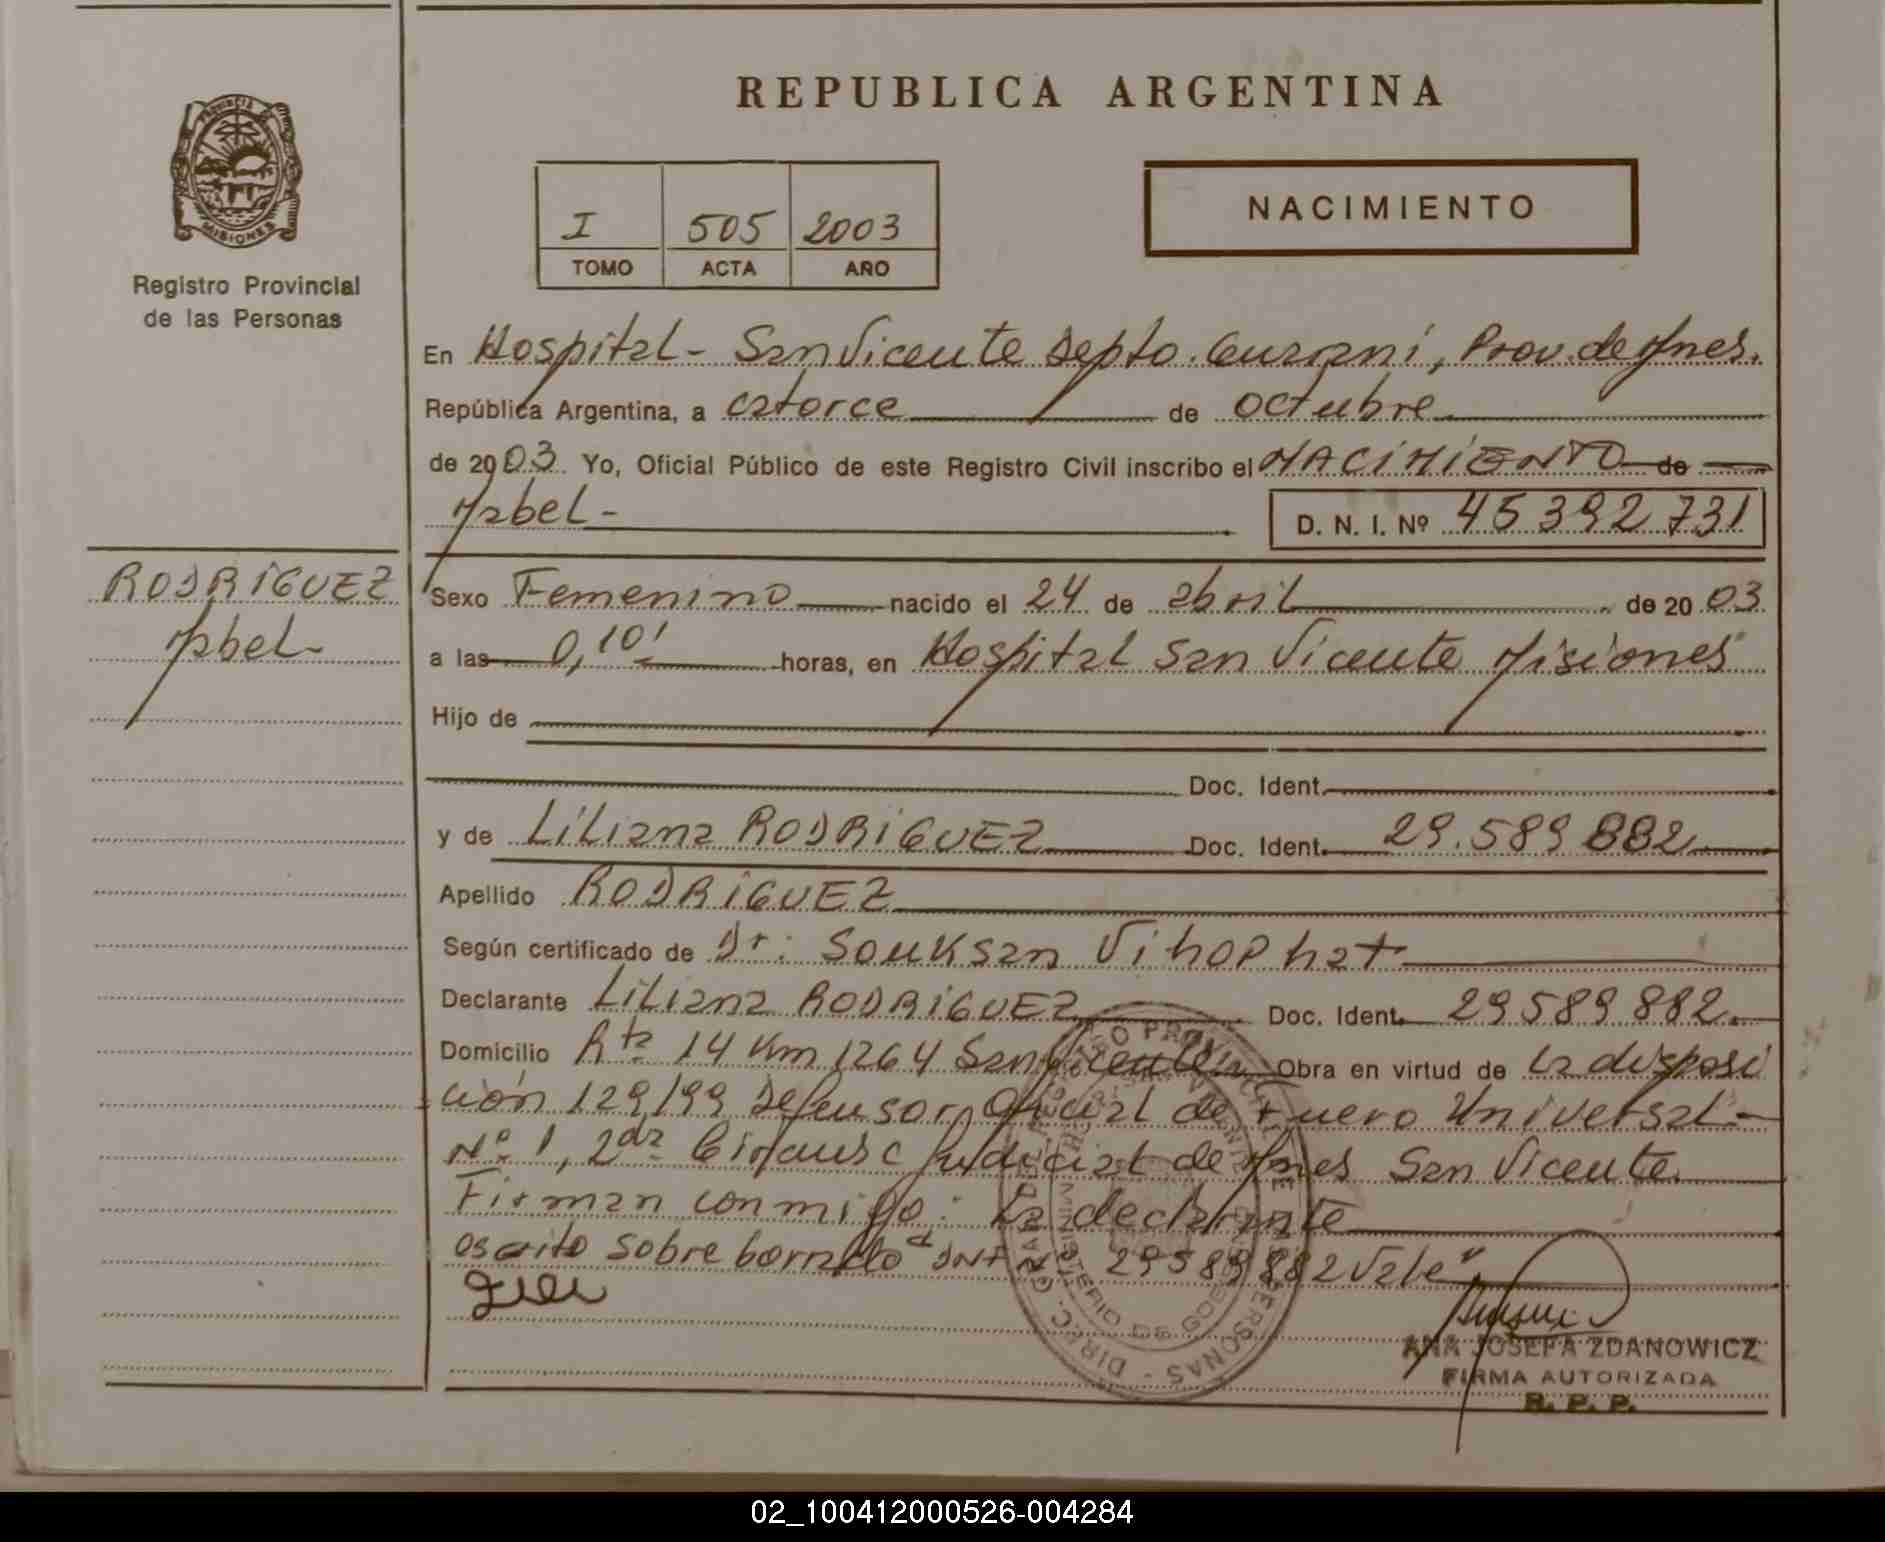 REPUBLICA ARGENTINA
PROVINCIA
MISIONES
Registro Provincial
de las Personas
I 505 2003
TOMO ACTA AÑO
NACIMIENTO
En Hospital - San Vicente Depto. Guaraní, Prov. de Mnes.
República Argentina, a catorce de octubre
de 2003. Yo, Oficial Público de este Registro Civil inscribo el NACIMIENTO de
Mabel - D. N. I. Nº 45392731
RODRIGUEZ
Mabel -
Sexo Femenino nacido el 24 de abril de 2003
a las 0,10' horas, en Hospital San Vicente Misiones
Hijo de
Doc. Ident.
y de Liliana RODRIGUEZ Doc. Ident. 29.589882
Apellido RODRIGUEZ
Según certificado de Dr: Souksan Vihophat
Declarante Liliana RODRIGUEZ Doc. Ident. 29589882.
Domicilio Rta 14 Km 1264 San Vicente Obra en virtud de la disposi
ción 129/99 Defensor Oficial de Fuero Universal -
Nº 1, 2da Circunsc Judicial de Mnes San Vicente
Firman conmigo: La declarante
escrito sobre borrado "DNI Nº 29589882 Vale"
ANA JOSEFA ZDANOWICZ
FIRMA AUTORIZADA
R. P. P.
DIREC. GRAL. DEL REGISTRO PROVINCIAL DE LAS PERSONAS
MINISTERIO DE GOBIERNO
02_100412000526-004284